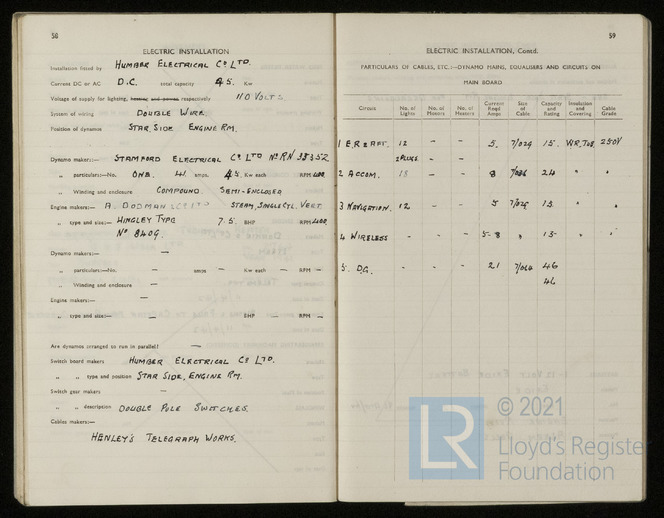 58
ELECTRIC INSTALLATION
Installation fitted by HUMBER ELECTRICAL Cº LTD.
Current DC or AC D.C. total capacity 4.5. Kw
Voltage of supply for lighting, heating and power, respectively 110 VOLTS
System of wiring DOUBLE WIRE
Position of dynamos STAR SIDE ENGINE RM.
Dynamo makers:— STAMFORD ELECTRICAL Cº LTD Nº RN 33352
„ particulars:—No. ONE. 41 amps 4.5. Kw each RPM 400
„ Winding and enclosure COMPOUND SEMI-ENCLOSED
Engine makers:— A. DODMAN & Cº LTD STEAM, SINGLE CYL. VERT
„ type and size:— HINGLEY TYPE 7.5. BHP RPM 400
Nº 8409.
Dynamo makers:— —
„ particulars:—No. — amps — Kw each — RPM —
„ Winding and enclosure —
Engine makers:— —
„ type and size:— — BHP — RPM —
Are dynamos arranged to run in parallel? —
Switch board makers HUMBER ELECTRICAL Cº LTD.
„ „ type and position STAR SIDE, ENGINE RM.
Switch gear makers —
„ „ description DOUBLE POLE SWITCHES.
Cables makers:—
HENLEY'S TELEGRAPH WORKS.
59
ELECTRIC INSTALLATION, Contd.
PARTICULARS OF CABLES, ETC.:—DYNAMO MAINS, EQUALISERS AND CIRCUITS ON
MAIN BOARD
Circuit No. of Lights No. of Motors No. of Heaters Current Reqd. Amps Size of Cable Capacity and Rating Insulation and Covering Cable Grade
1 E.R & AFT. 12 — — 5. 7/029 15. V.R, TOB. 250V
2 PLUGS
2 ACCOM. 15 — — 8 7/036 24 " "
3 NAVIGATION. 12 — — 5 7/029 15. " "
4 WIRELESS - - - 5-8 " 15- " "
5. D.G. - - - 21 7/064 46
46
© 2021
LR
Lloyd's Register
Foundation